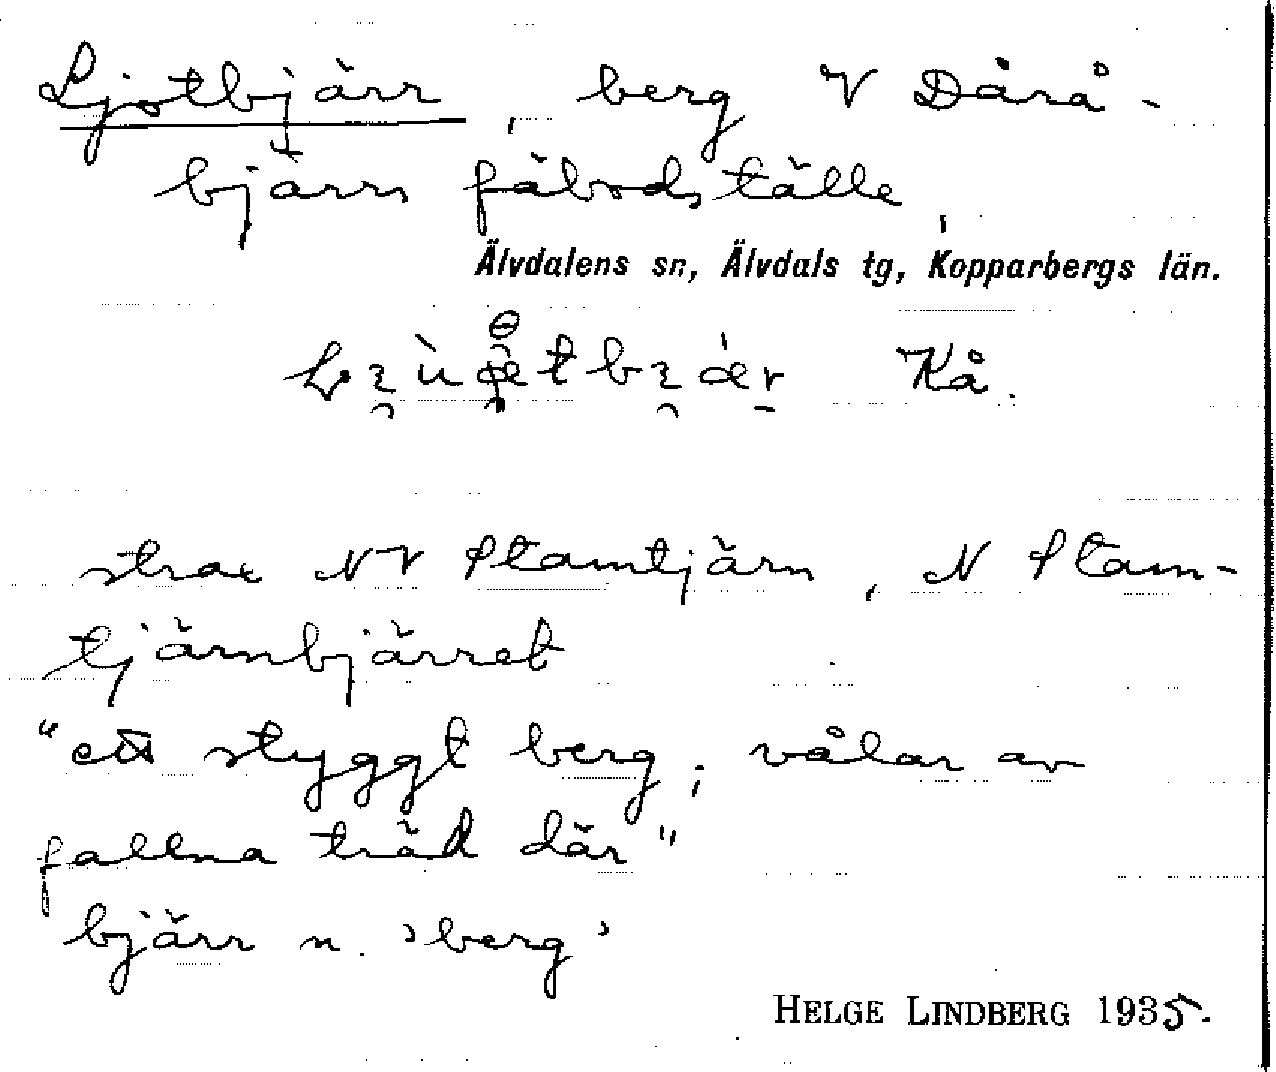 Ljotbjärr, berg V Dårå-
bjärrs fäbodställe,
Älvdalens sn, Älvdals tg, Kopparbergs län.
Kå.
strax NV Stamtjärn, N Stam-
tjärnbjärret
"ett styggt berg; vålar av
fallna träd där"
bjärr n. 'berg'
HELGE LINDBERG 1935.